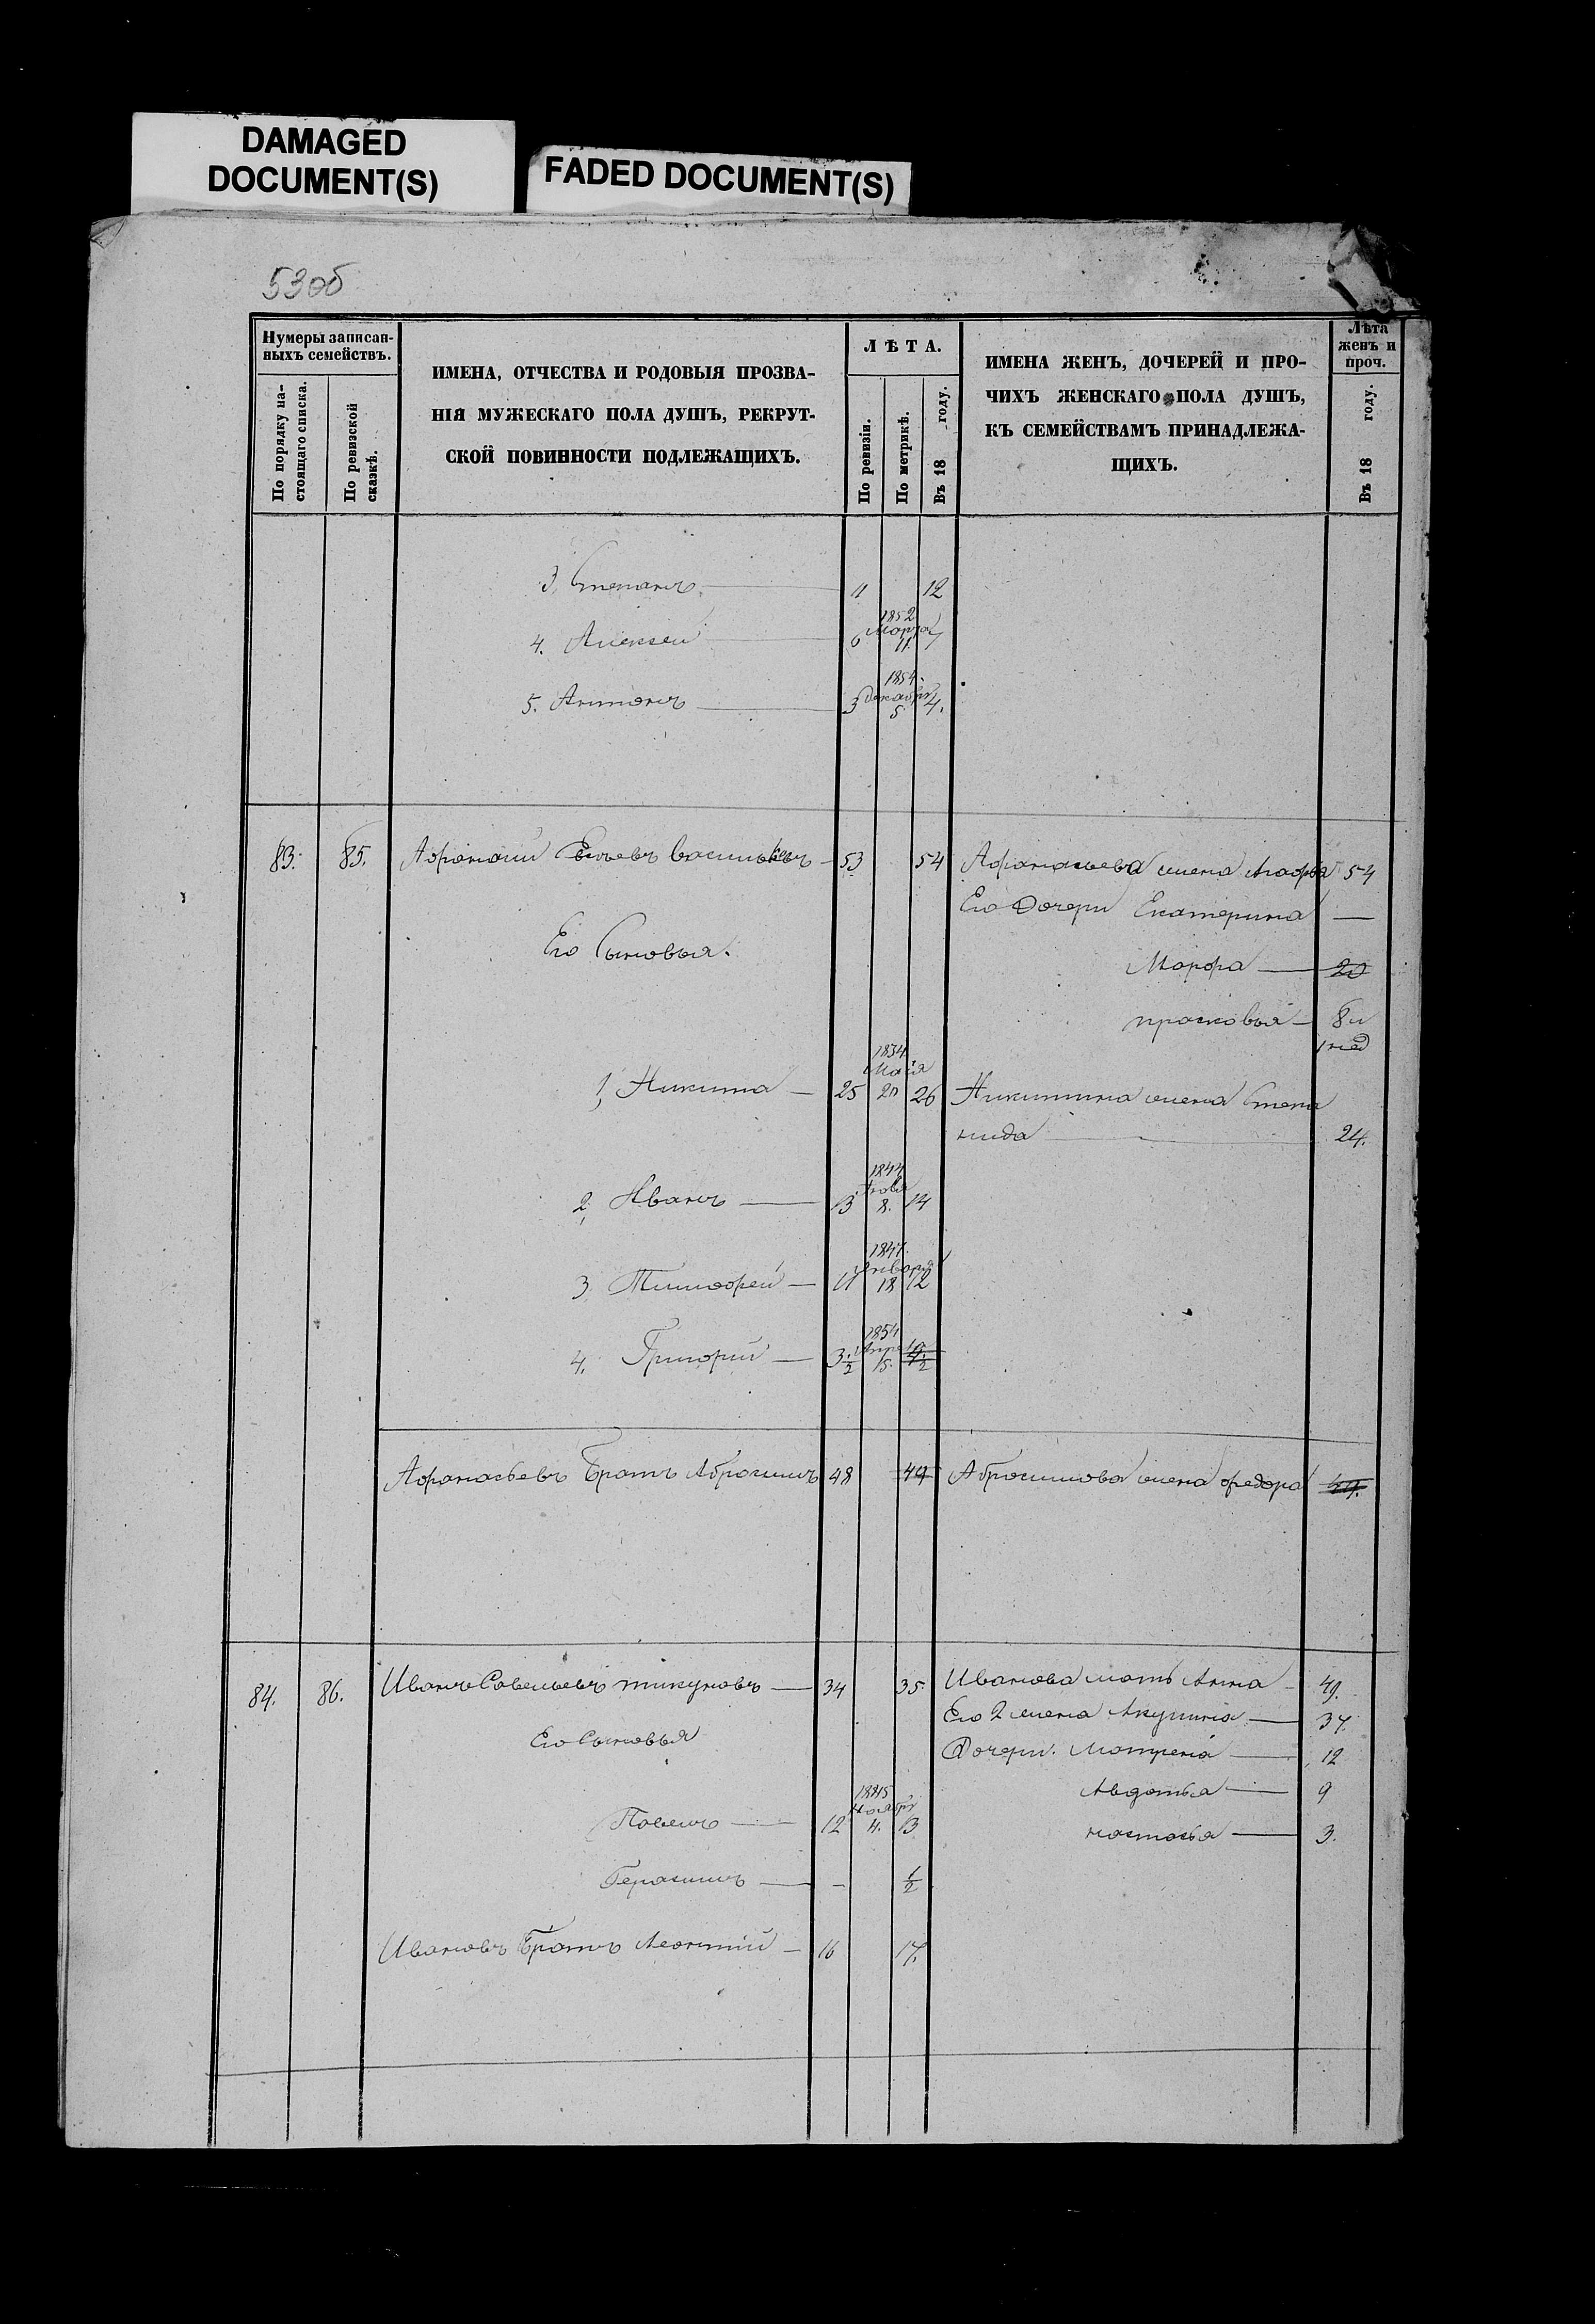 DAMAGED
DOCUMENT(S)
FADED DOCUMENT(S)
53об
Нумеры записан-
ныхъ семействъ.
По порядку на-
стоящаго списка.
По ревизской
сказкѣ.
ИМЕНА, ОТЧЕСТВА И РОДОВЫЯ ПРОЗВА-
НІЯ МУЖЕСКАГО ПОЛА ДУШЪ, РЕКРУТ-
СКОЙ ПОВИННОСТИ ПОДЛЕЖАЩИХЪ.
ЛѢТА.
По ревизіи.
По метрикѣ.
Въ 18 году.
ИМЕНА ЖЕНЪ, ДОЧЕРЕЙ И ПРО-
ЧИХЪ ЖЕНСКАГО ПОЛА ДУШЪ,
КЪ СЕМЕЙСТВАМЪ ПРИНАДЛЕЖА-
ЩИХЪ.
Лѣта
женъ и
проч.
Въ 18 году.
3, Степанъ 11 12
4. Алексей 6 1852 Марта 11. 7
5. Антонъ 3 1854. декабря 5 4.
83. 85. Афанасий васильевъ 53 54 Афанасьева жена Агафья 54
Его Дочери Екатерина —
Его Сыновья.
Марфа 20
прасковья 8 и
1 нед
1, Никита 25 1834 Маія 20 26 Никитина жена Степа
нида 24.
2, Иванъ 13 1844 8. 14
3, Тимофей 11 1847. Января 18 12
4. Григорий 3 1/2 1854 Апреля 15. 4 1/2
Афанасьевъ Братъ Абросимъ 48 49 Абросимова жена федора 49.
84. 86. Иванъ Савельевъ тикуновъ 34 35 Иванова мать Анна 49.
Его 2 жена Акулина 37.
Его Сыновья
Дочери. Матрена 12
Авдотья 9
Павелъ 12 1845 Ноября 4. 13
настасья 3.
Герасимъ — 1/2
Ивановъ Братъ Леонтий 16 17.